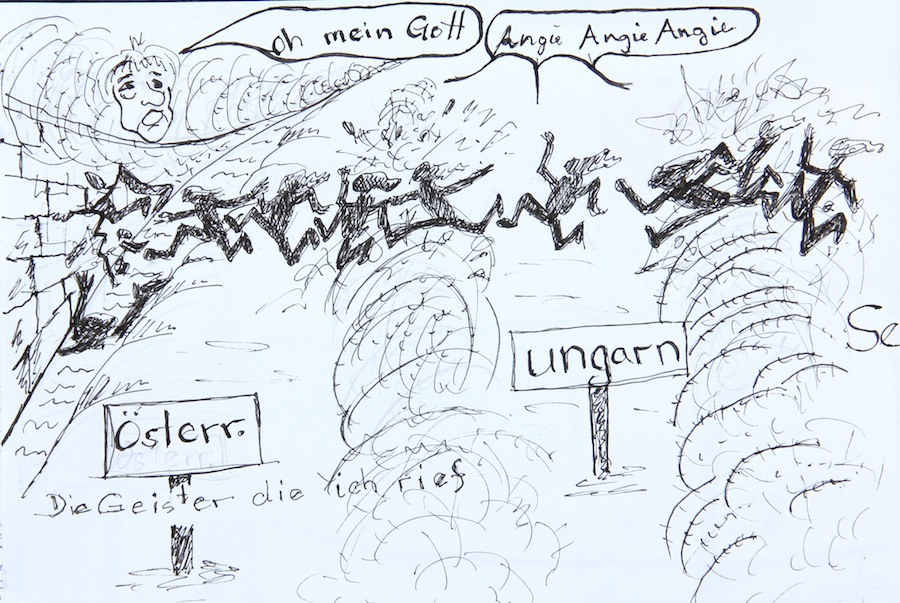 Oh mein Gott
Angie Angie Angie
Se
ungarn
Österr.
Die Geister die ich rief